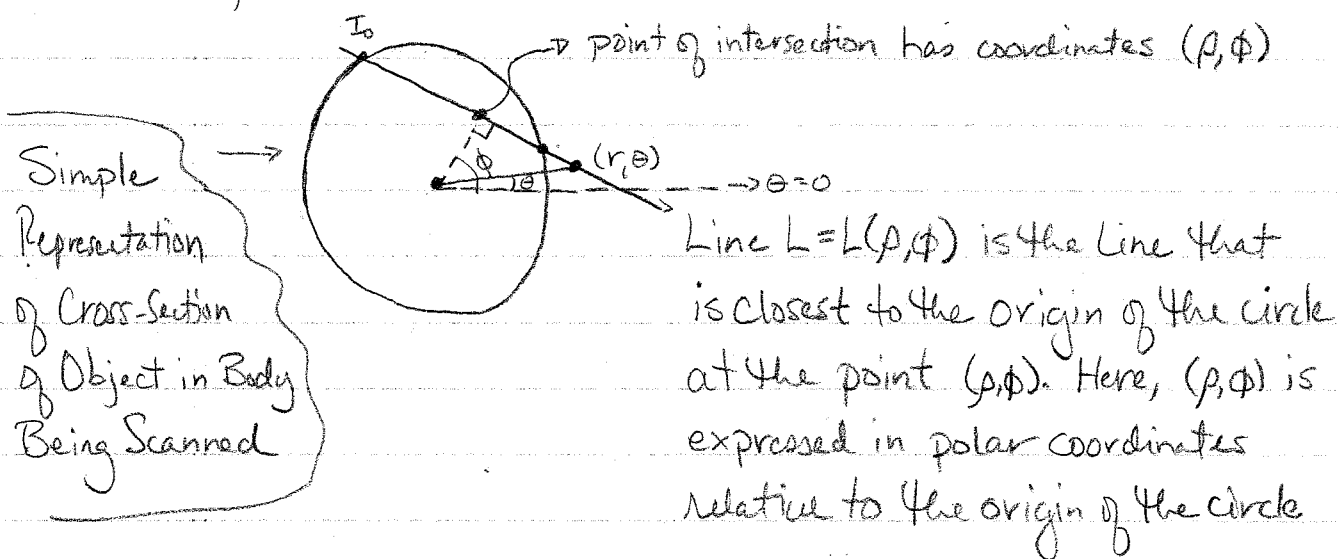 I₀
point of intersection has coordinates (ρ,ϕ)
Simple
Representation
of Cross-Section
of Object in Body
Being Scanned
ϕ
θ
(r,θ)
θ=0
Line L=L(ρ,ϕ) is the Line that
is closest to the origin of the circle
at the point (ρ,ϕ). Here, (ρ,ϕ) is
expressed in polar coordinates
relative to the origin of the circle